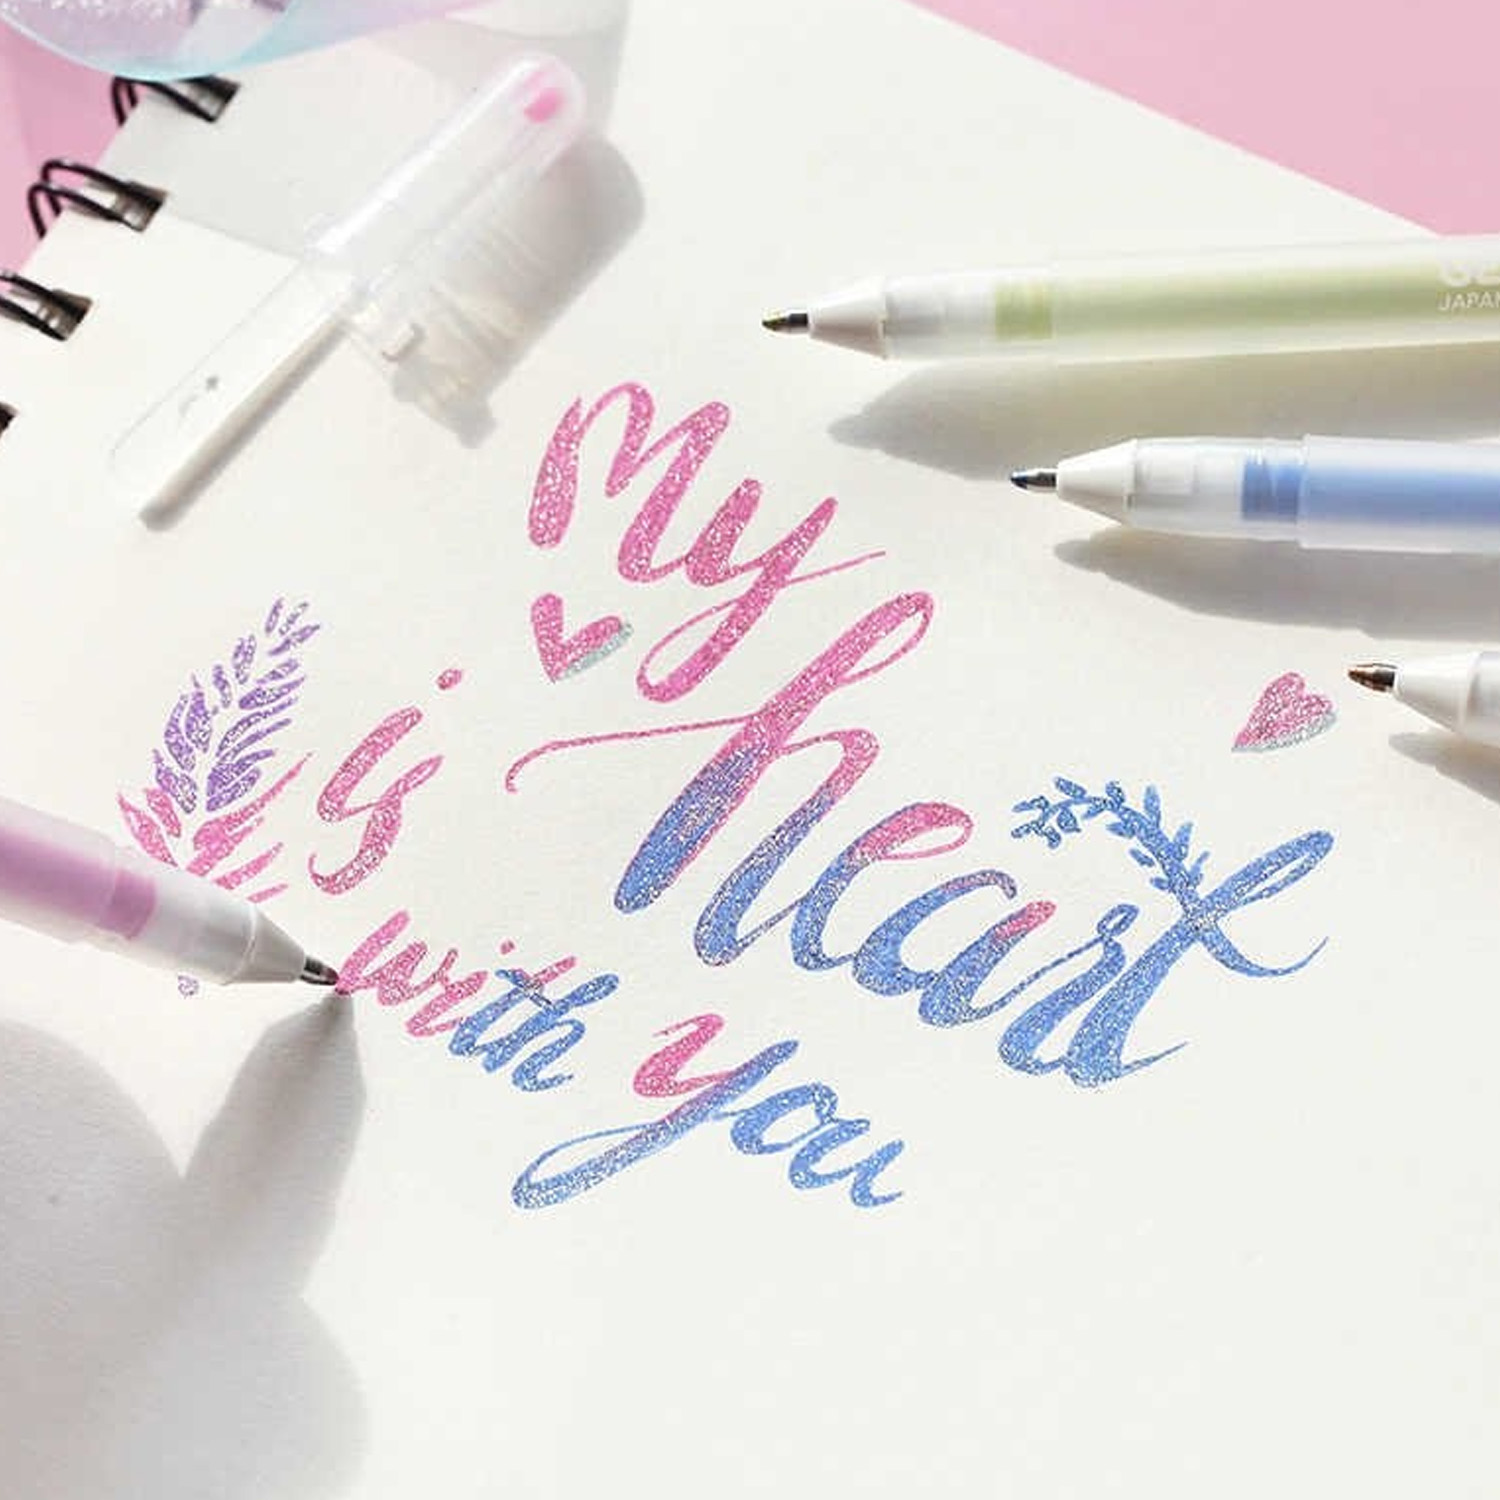 My
heart
is
with you
JAPAN